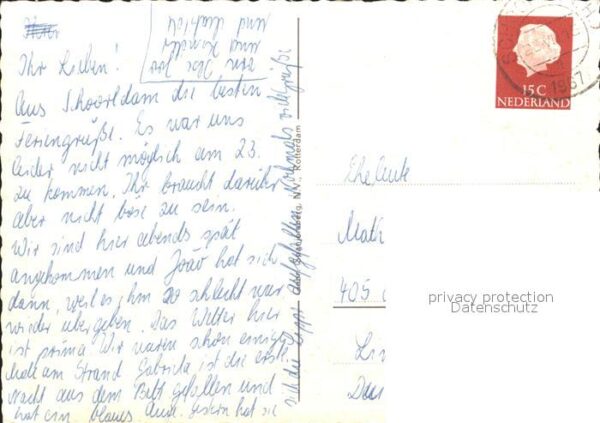 Ihr Lieben!
Aus Schoorldam die besten
Feriengrüße. Es war uns
leider nicht möglich am 23.
zu kommen. Ihr braucht darüber
aber nicht böse zu sein.
Wir sind hier abends spät
angekommen und hat sich
dann, weil es ihm so schlecht war
wieder übergeben. Das Wetter hier
ist prima. Wir waren schon einige
am Strand. Gabriela ist die erste
Nacht aus dem Bett gefallen und
hat ein blaues Gestern hat sie
sich die Lippe aufgefallen. Nochmals viele Grüße
von
und
N.V., Rotterdam
15 C
NEDERLAND
1967
Eheleute
Math
405
privacy protection
Datenschutz